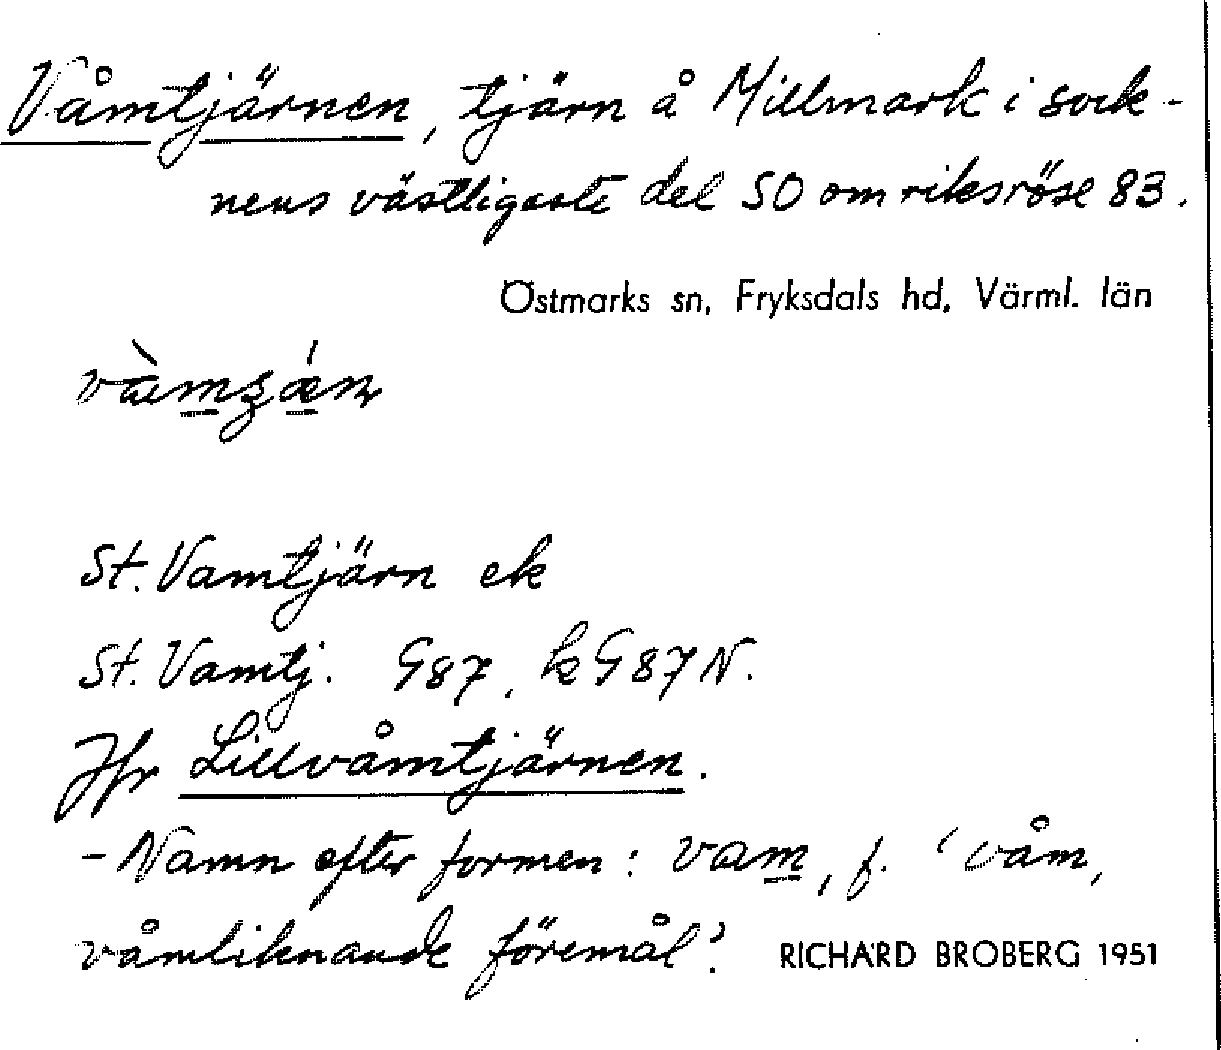 Våmtjärnen, tjärn å Millmark i sock-
nens västligaste del SO om riksröse 83.
Östmarks sn, Fryksdals hd, Värml. län
St. Vamtjärn ek
St. Vamtj. G87, kG87N.
Jfr Lillvåmtjärnen.
- Namn efter formen: vam, f. 'våm,
våmliknande föremål'.
RICHARD BROBERG 1951